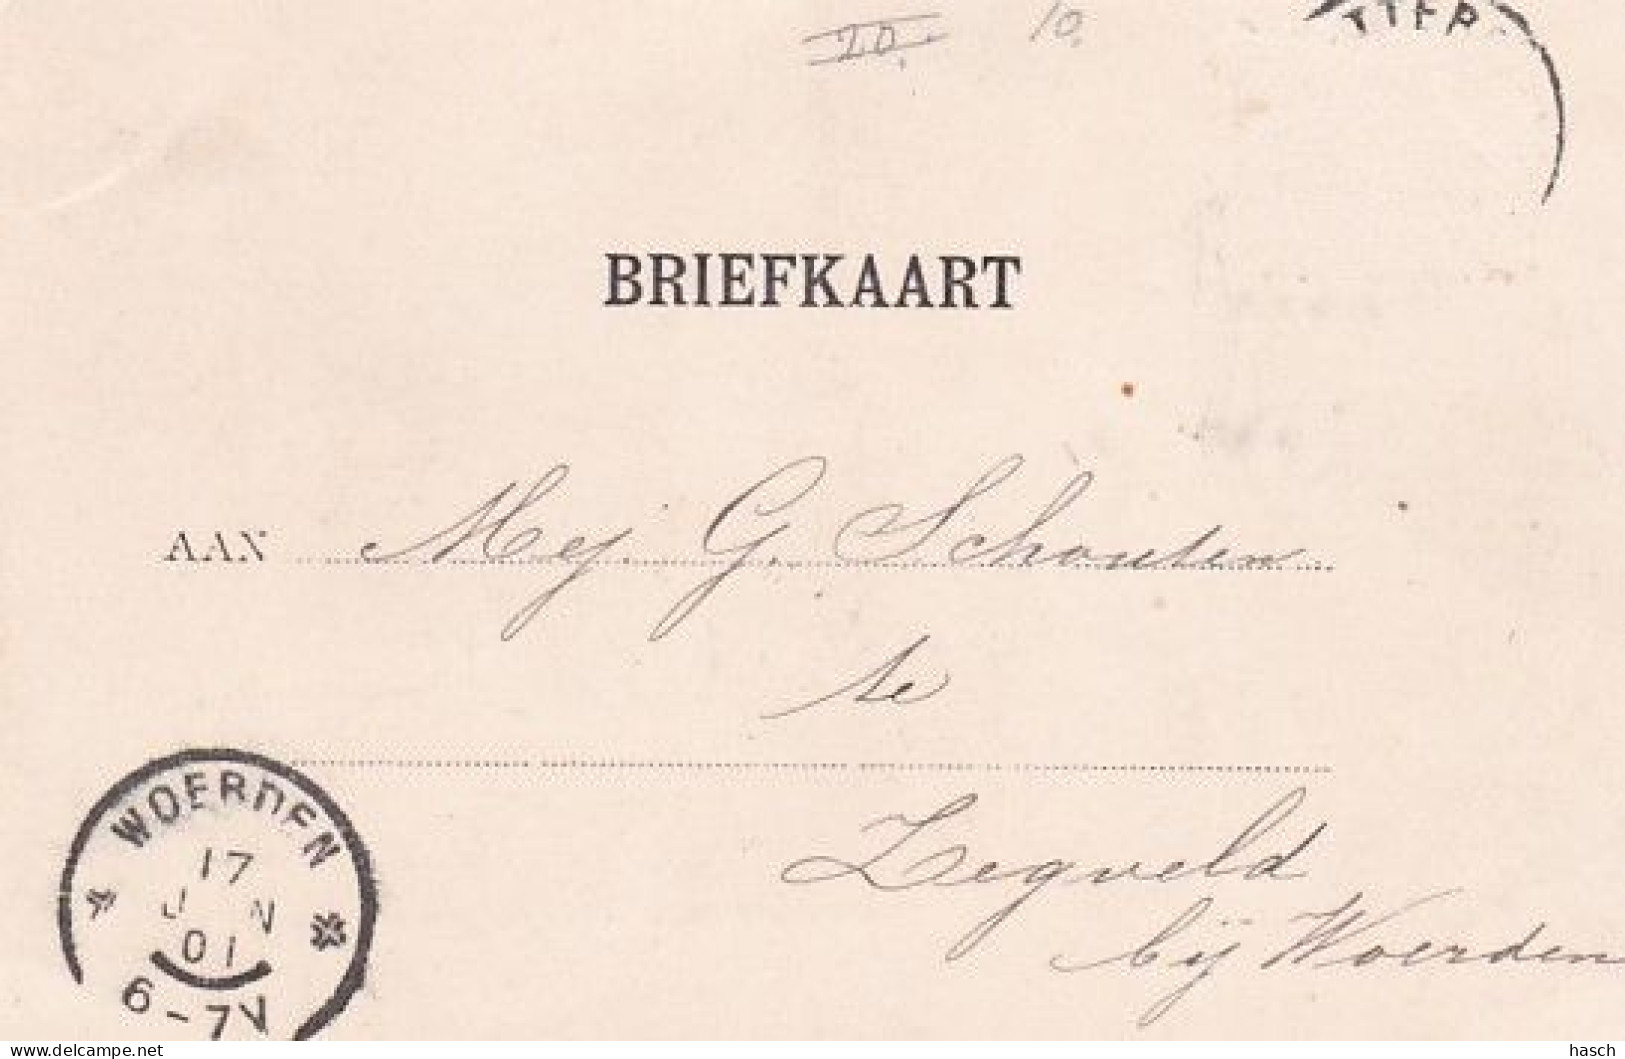 20. 10.
BRIEFKAART
AAN Mej. G. Schouten
te
Zegveld
bij Woerden
WOERDEN
17
J N
01
6-7V
www.delcampe.net
hasch